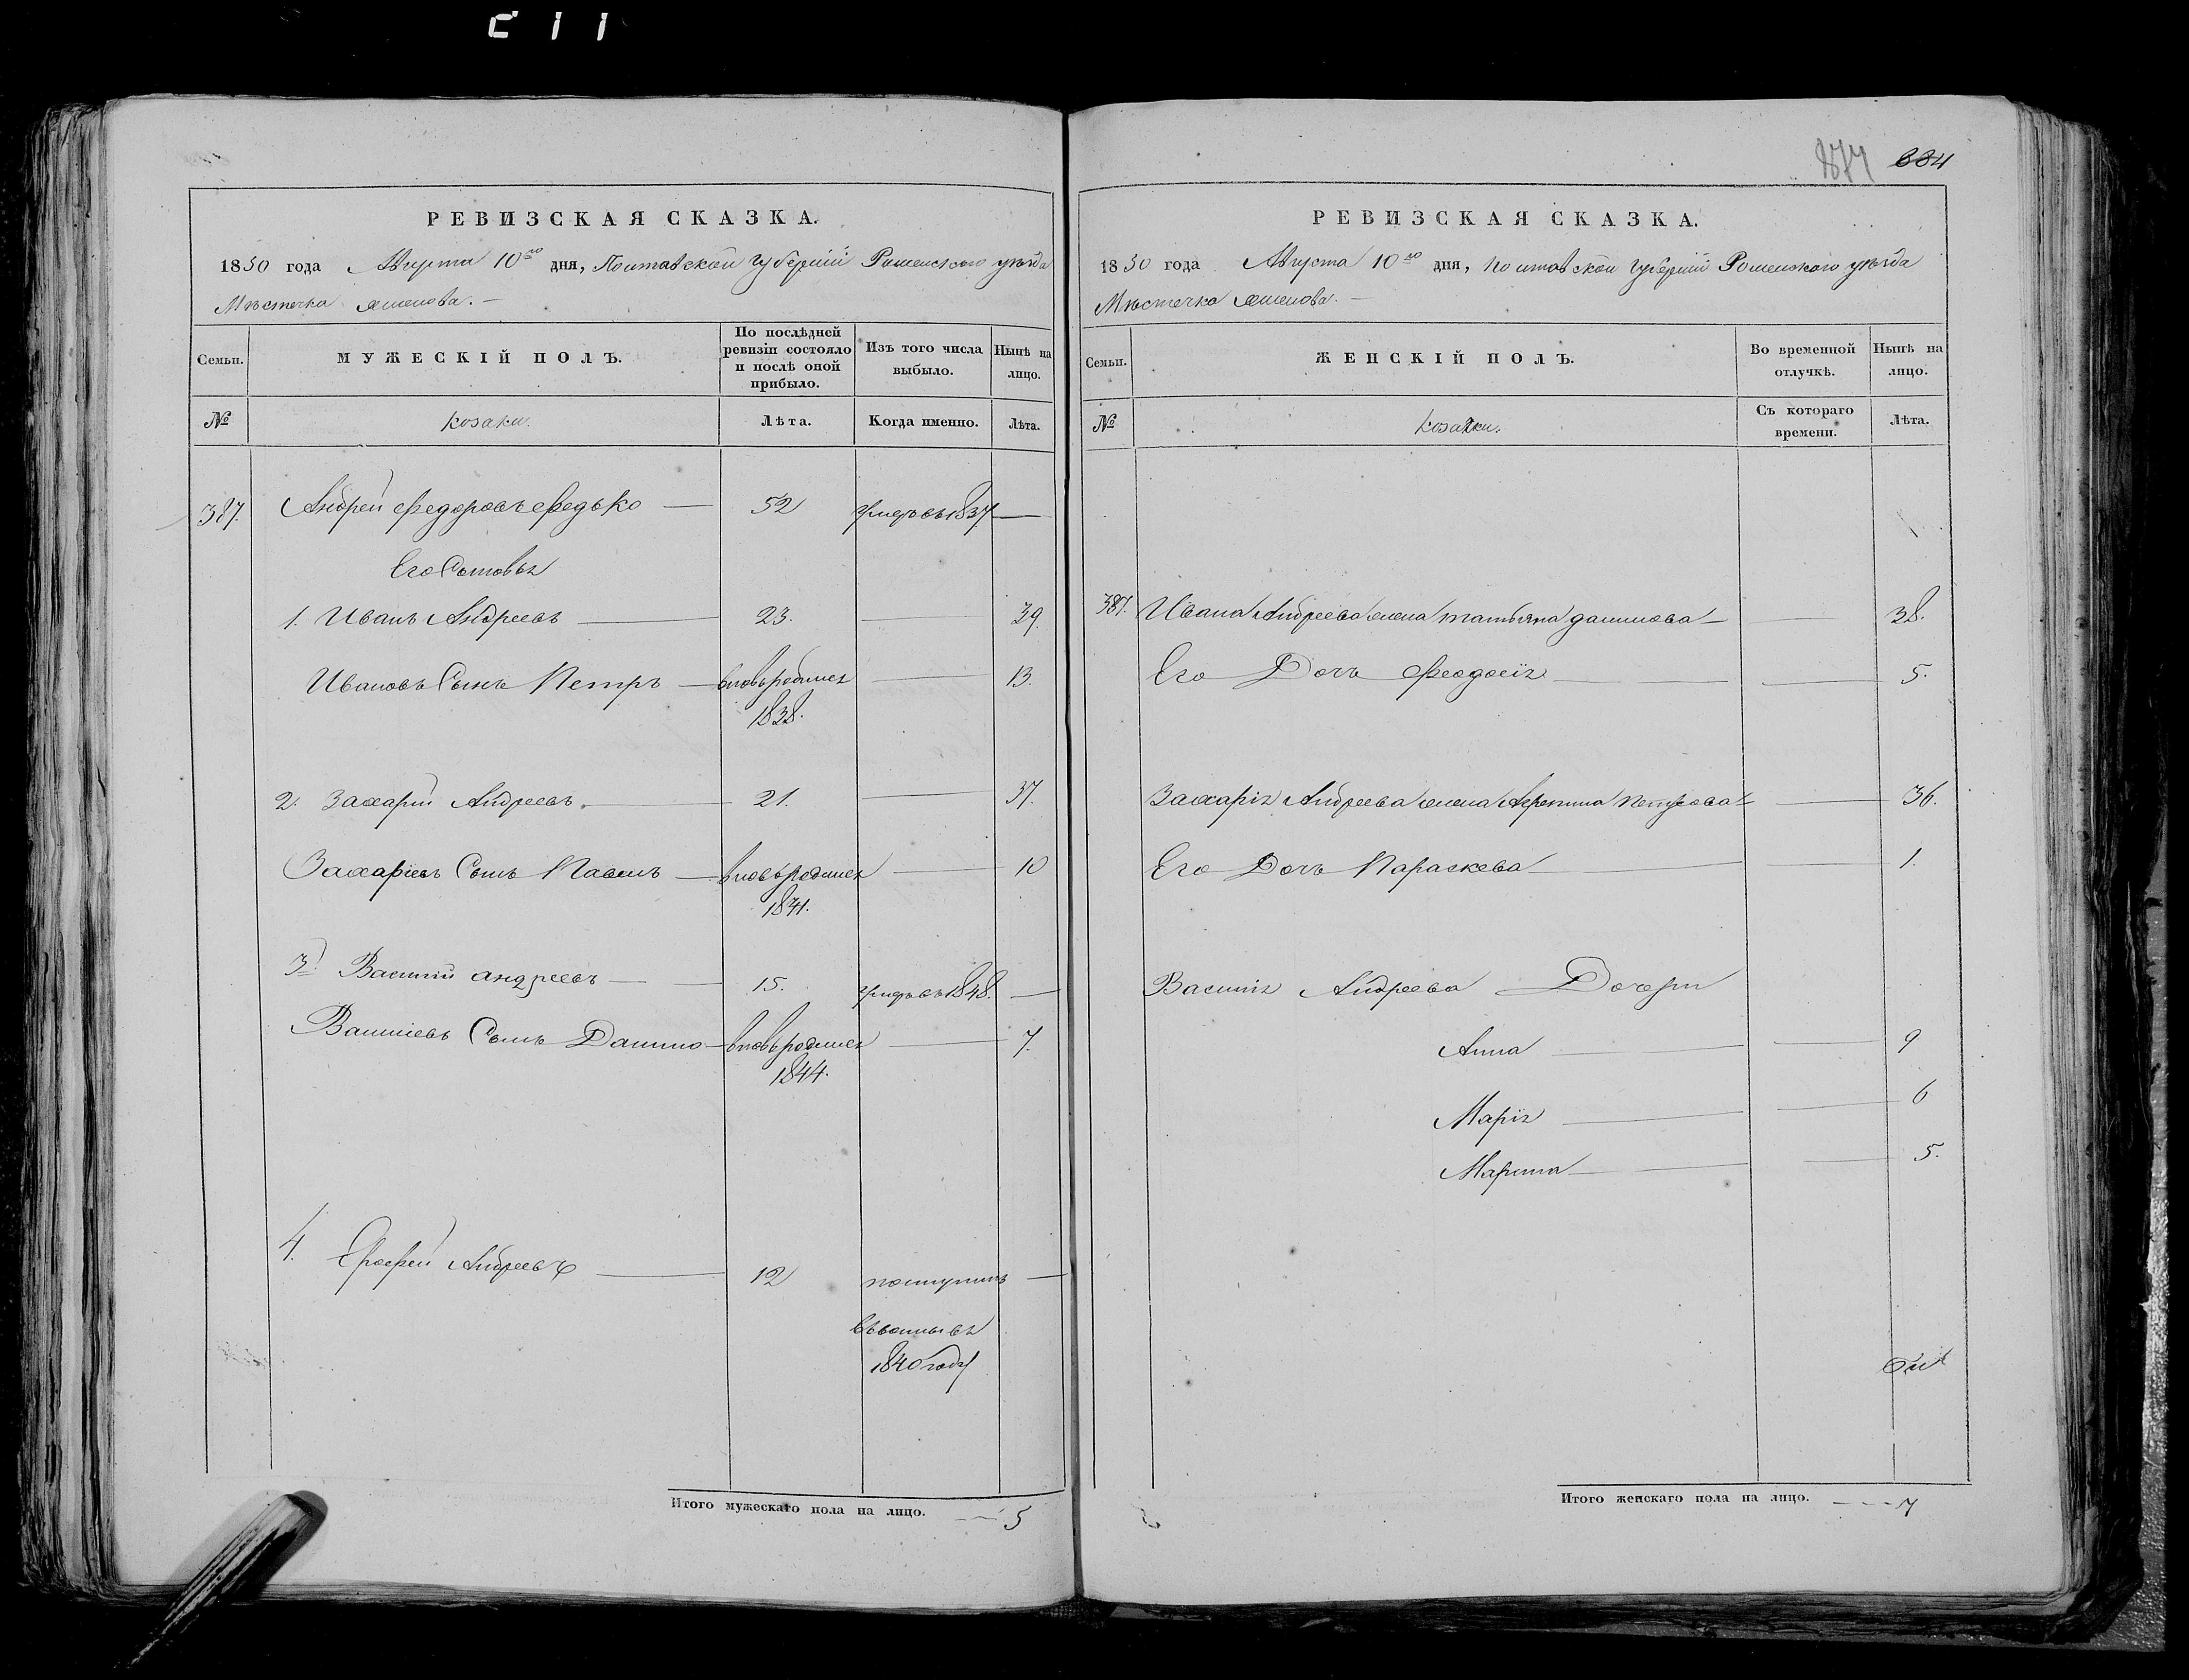 511
РЕВИЗСКАЯ СКАЗКА.
1850 года Августа 10го дня, Полтавской Губерніи Роменскаго уѣзда
Мѣстечка
Семьи.
МУЖЕСКІЙ ПОЛЪ.
По послѣдней ревизіи состояло и послѣ оной прибыло.
Изъ того числа выбыло.
Нынѣ на лицо.
№
козаки.
Лѣта.
Когда именно.
Лѣта.
387. Андрей Федоровъ Федько — 52 умеръ въ 1837 —
Его Сыновья
1. Иванъ Андреевъ — 23. — 39.
Ивановъ Сынъ Петръ — вновь родился — 13.
1838.
2. Захарій Андреевъ. — 21. — 37.
Захаріевъ Сынъ Павелъ — вновь родился — 10
1841.
3. Василій Андреевъ — 15. умеръ въ 1848. —
Василіевъ Сынъ Данило — вновь родился — 7.
1844.
4. Ерофей Андреевъ — 12 поступилъ —
1840 году
Итого мужескаго пола на лицо. — 5
884
РЕВИЗСКАЯ СКАЗКА.
1850 года Августа 10го дня, Полтавской Губерніи Роменскаго уѣзда
Мѣстечка
Семьи.
ЖЕНСКІЙ ПОЛЪ.
Во временной отлучкѣ.
Нынѣ на лицо.
№
козачки.
Съ котораго времени.
Лѣта.
387. Ивана Андреева жена Татьяна Данилова — 38.
Его Дочь Феодосія — 5.
Захарія Андреева жена Агрепина Петрова — 36.
Его Дочь Параскева — 1.
Василія Андреева Дочери
Анна — 9
Марія — 6
Марина — 5.
Итого женскаго пола на лицо. — 7